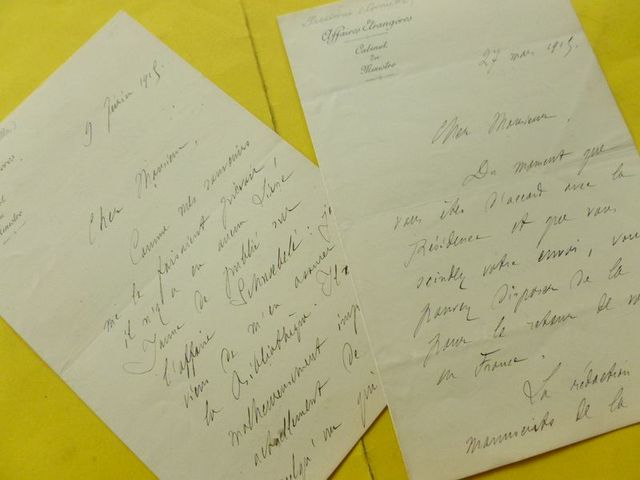 9 février 1915
Cher Monsieur,
Comme mes souvenirs
me le faisaient prévoir,
il n'y a eu aucun Livre
Jaune de publié sur
l'affaire Schnaebelé : je
viens de m'en assurer
la Bibliothèque. Il
malheureusement
actuellement de
qu'un qui
Affaires Etrangères
Cabinet
du
Ministre
27 mars 1915
Cher Monsieur,
Du moment que
vous êtes d'accord avec la
Résidence et que vous
scindez votre envoi, vous
pouvez disposer de la
pour le retour de
en France.
La rédaction
manuscrits de la